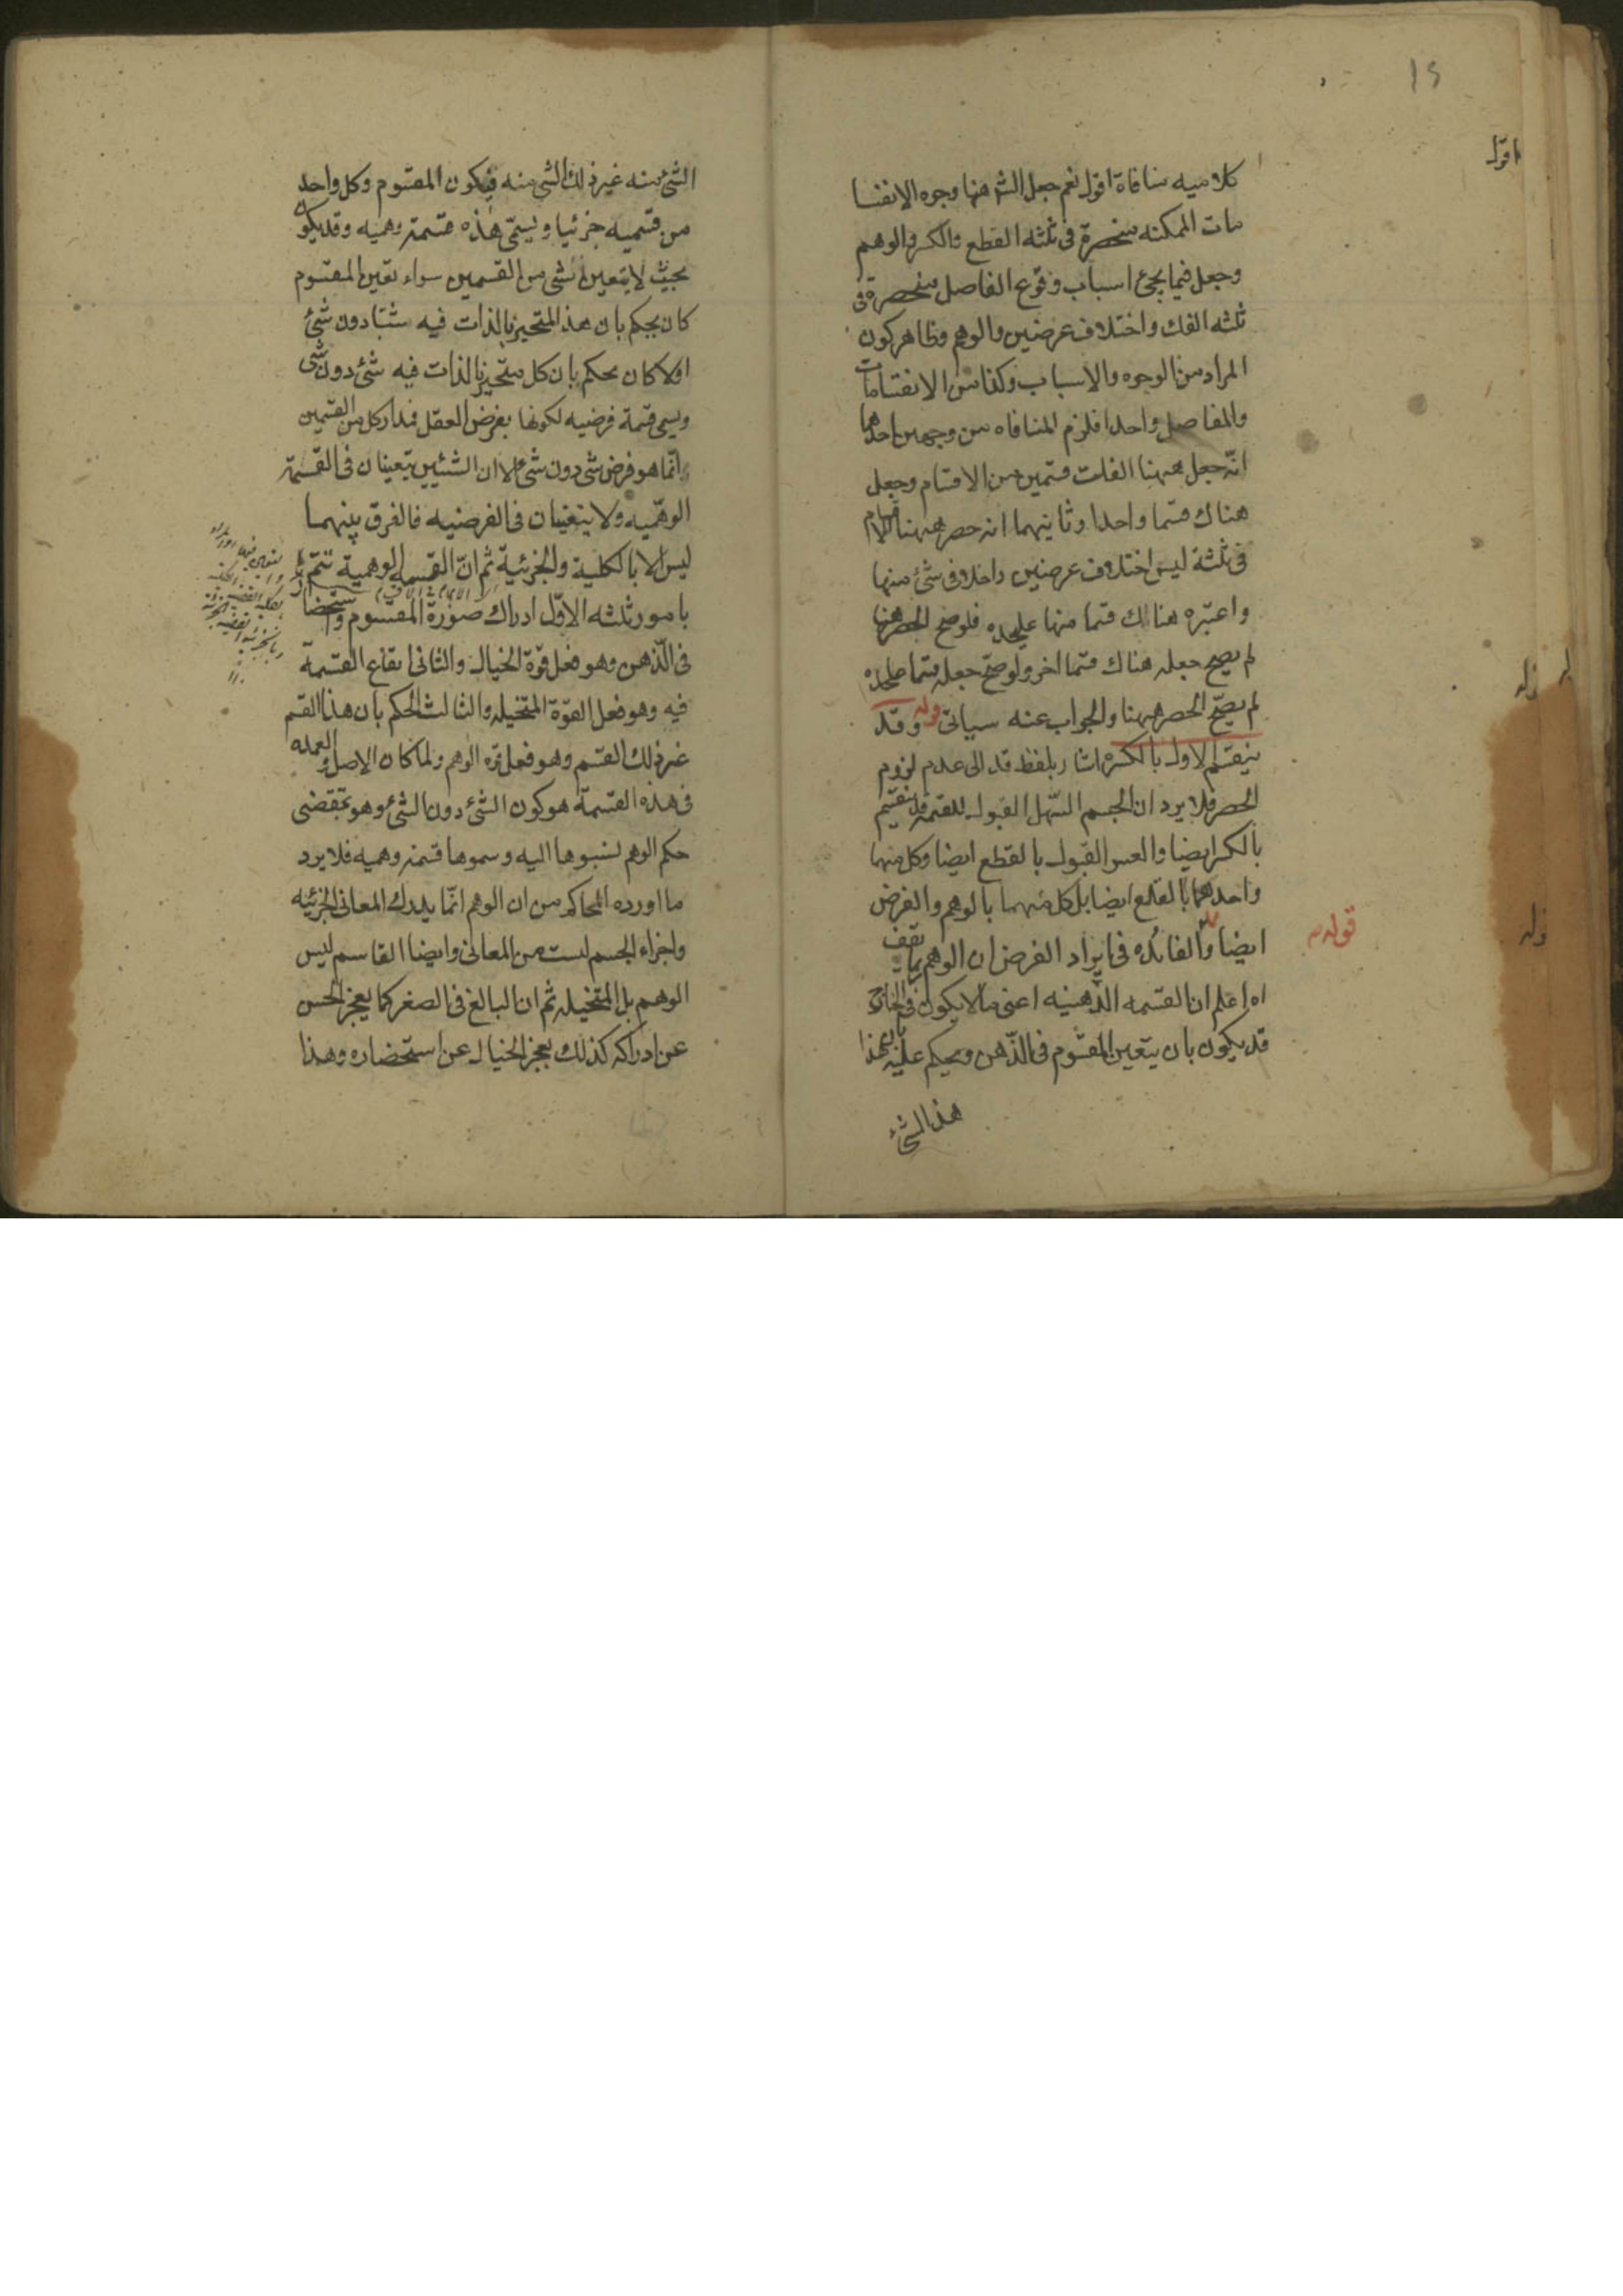 ١٥
كلاميه منافاة اقول نعم جعل الشه هنا وجوه الانقسا
مات الممكنه منحصرة فى ثلثه القطع والكسر والوهم
وجعل فيما يجئ اسباب وقوع الفاصل منحصرة فى
ثلثه الفك واختلاف عرضين والوهم وظاهر كون
المراد من الوجوه والاسباب وكذا من الانقسامات
والمفاصل واحدا فلزم المنافاه من وجهين احدهما
انّه جعل ههنا الفك قسمين من الاقسام وجعل
هناك قسما واحدا وثانيهما انه حصر ههنا الاقسام
فى ثلثة ليس اختلاف عرضين داخلا فى شئ منها
واعتبره هناك قسما منها عليحده فلو صح الحصر ههنا
لم يصح جعله هناك قسما اخر ولو صحّ جعله قسما عليحده
لم يصحّ الحصر ههنا والجواب عنه سياتى قوله وقد
ينقسم الاول بالكسر اشار بلفظ قد الى عدم لزوم
الحصر فلا يرد ان الجسم السّهل القبول للقسمة قد ينقسم
بالكسر ايضا والعسر القبول بالقطع ايضا وكل منهما
واحدهما بالقلع ايضا بل كل منهما بالوهم والفرض
ايضا قوله والفائده فى ايراد الفرض ان الوهم ربما يقف
اه اعلم ان القسمه الذّهنيه اعنى ما لا يكون فى الخارج
قد يكون بان يتعين المقسوم فى الذّهن ويحكم عليه بان هذا
هذا الشئ
قوله
الشئ منه غير ذلك الشى منه فيكون المقسوم وكل واحد
من قسميه جزئيا ويسمّى هذه قسمة وهميه وقد يكون
بحيث لا يتعين شى من القسمين سواء تعين المقسوم
كان يحكم بان هذا المتحيز بالذات فيه شئا دون شئ
اولا كان يحكم بان كل متحيز بالذات فيه شئ دون شى
ويسمى قسمة فرضيه لكونها بفرض العقل فمدار كل من القسمين
انّما هو فرض شى دون شى الا ان الشيئين يتعينان فى القسمة
الوهّميه ولا يتعينان فى الفرضيه فالفرق بينهما
ليس الا بالكلية والجزئية ثم انّ القسمه الوهمية تتم
بامور ثلثه الاوّل ادراك صورة المقسوم واستحضارها
فى الذّهن وهو فعل قوّة الخيال والثانى ايقاع القسمة
فيه وهو فعل القوّة المتخيله والثالث الحكم بان هذا القسم
غير ذلك القسم وهو فعل قوه الوهم ولما كان الاصل والعمده
فى هذه القسمة هو كون الشئ دون الشئ وهو بمقتضى
حكم الوهم نسبوها اليه وسموها قسمة وهميه فلا يرد
ما اورده المحاكم من ان الوهم انّما يدرك المعانى الجزئيه
واجزاء الجسم ليست من المعانى وايضا القاسم ليس
الوهم بل المتخيله ثم ان البالغ فى الصغر كما يعجز الحس
عن ادراكه كذلك يعجز الخيال عن استحضاره وهذا